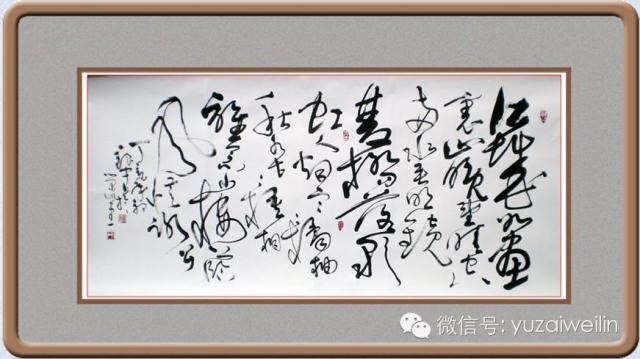 江城如畫
裏山晚望晴空
兩水夾明鏡
雙橋落彩
虹人烟寒橘柚
秋色老梧桐
誰念北樓上臨
風懷謝公
微信号: yuzaiweilin